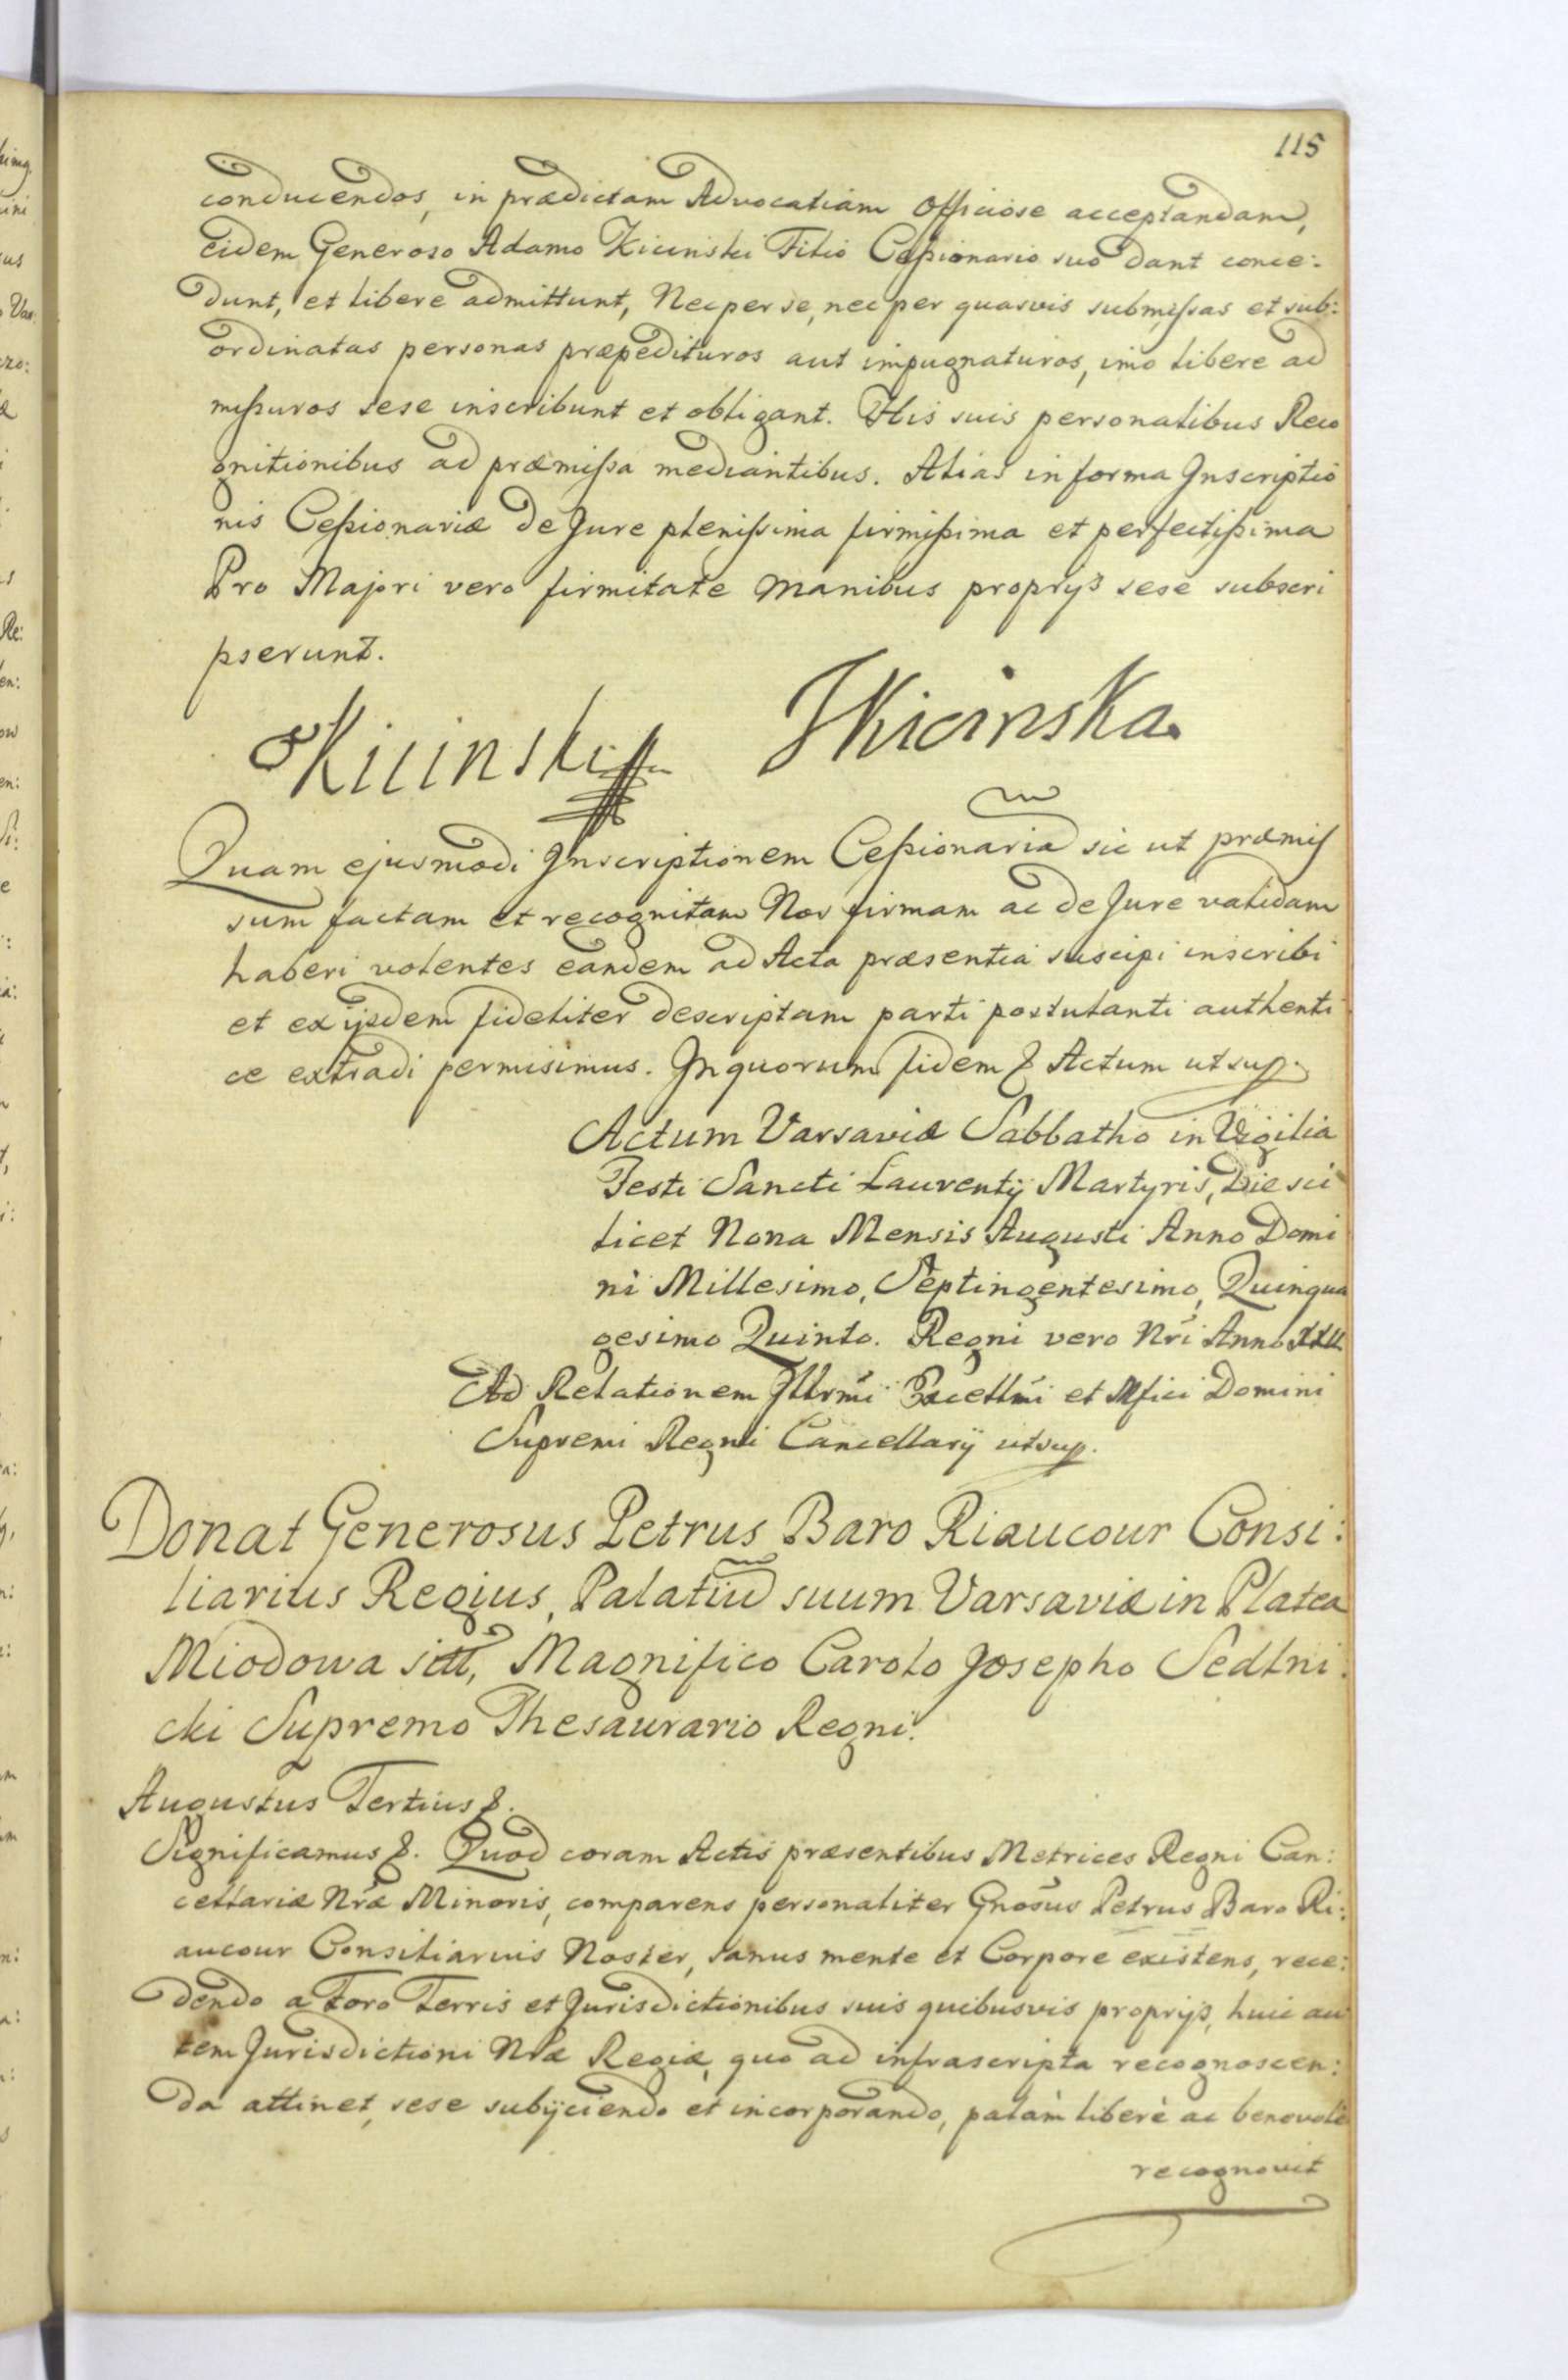 115
conducendos, in prædictam Advocatiam Officiose acceptandam,
eidem Generoso Adamo Kicinski Filio Cessionario suo dant conce:
dunt, et libere admittunt, Nec per se, nec per quasvis submissas et sub:
ordinatas personas præpedituros aut impugnaturos, imo libere ad
missuros sese inscribunt et obligant. His suis personalibus Reco
gnitionibus ad præmissa mediantibus. Alias in forma Inscriptio
nis Cessionariæ de Jure plenissima firmissima et perfectissima
Pro Majori vero firmitate manibus proprijs sese subscri
pserunt.
Kicinski
Kicinska
Quam ejusmodi Inscriptionem Cessionaria sic ut præmis
sum factam et recognitam Nos firmam ac de Jure validam
haberi volentes eandem ad Acta præsentia suscipi inscribi
et ex ijsdem fideliter descriptam parti postulanti authenti
ce extradi permisimus. In quorum fidem & Actum ut sup.
Actum Varsaviæ Sabbatho in Vigilia
Festi Sancti Laurentij Martyris, Die sci
licet Nona Mensis Augusti Anno Domi
ni Millesimo, Septingentesimo, Quinqua
gesimo Quinto. Regni vero Nri Anno XXII
Ad Relationem Illrmi Excellmi et Mfici Domini
Supremi Regni Cancellarij ut sup.
Donat Generosus Petrus Baro Riaucour Consi:
liarius Regius, Palatiu suum Varsaviæ in Platea
Miodowa sitt, Magnifico Carolo Josepho Sedlni:
cki Supremo Thesaurario Regni.
Augustus Tertius &.
Significamus &. Quod coram Actis præsentibus Metrices Regni Can:
cellariæ Nræ Minoris, comparens personaliter Gnosus Petrus Baro Ri:
aucour Consiliarius Noster, sanus mente et Corpore existens, rece:
dendo a Foro Terris et Jurisdictionibus suis quibusvis proprijs, huic au
tem Jurisdictioni Nræ Regiæ, quo ad infrascripta recognoscen:
da attinet, sese subijciendo et incorporando, palàm liberè ac benevole
recognovit